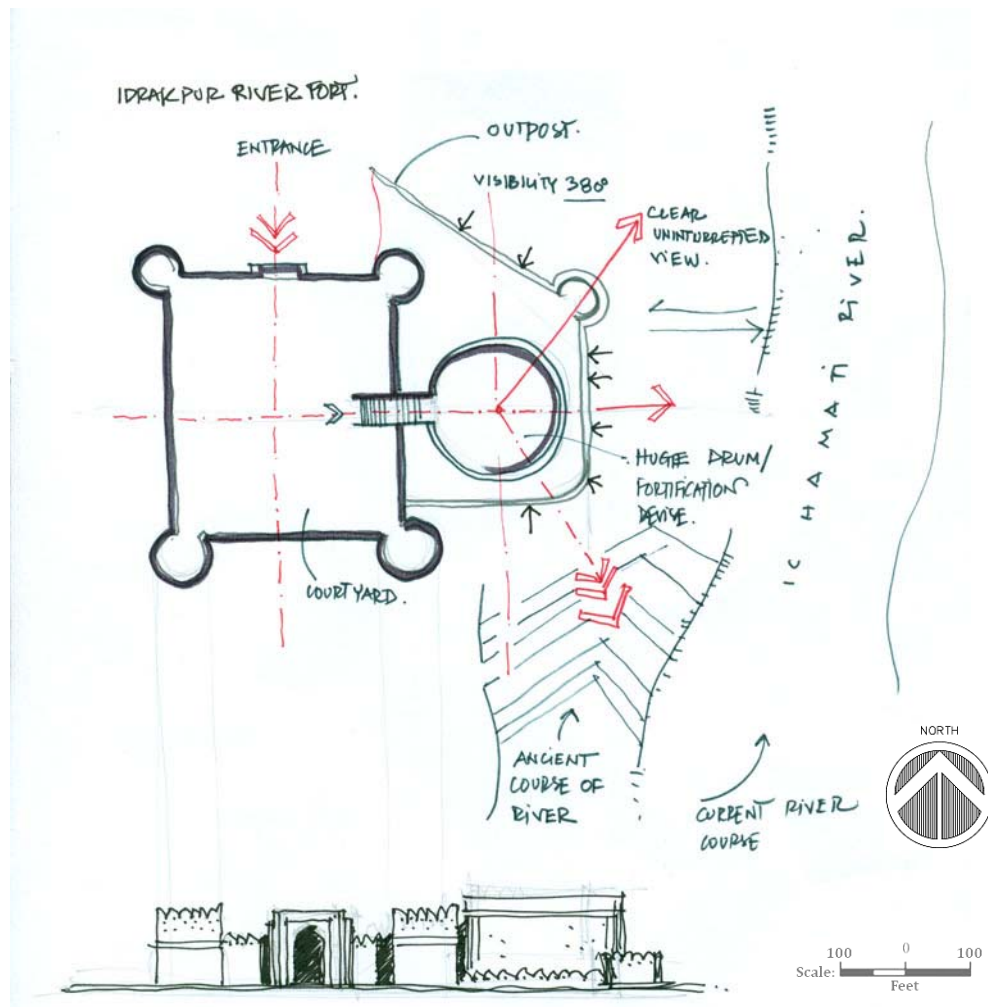 IDRAKPUR RIVER FORT.
ENTRANCE
OUTPOST.
VISIBILITY 380°
CLEAR
UNINTURREPTED
VIEW.
ICHAMATI RIVER.
HUGE DRUM/
FORTIFICATION
DEVISE.
COURTYARD.
ANCIENT
COURSE OF
RIVER
CURRENT RIVER
COURSE
NORTH
100 0 100
Scale:
Feet